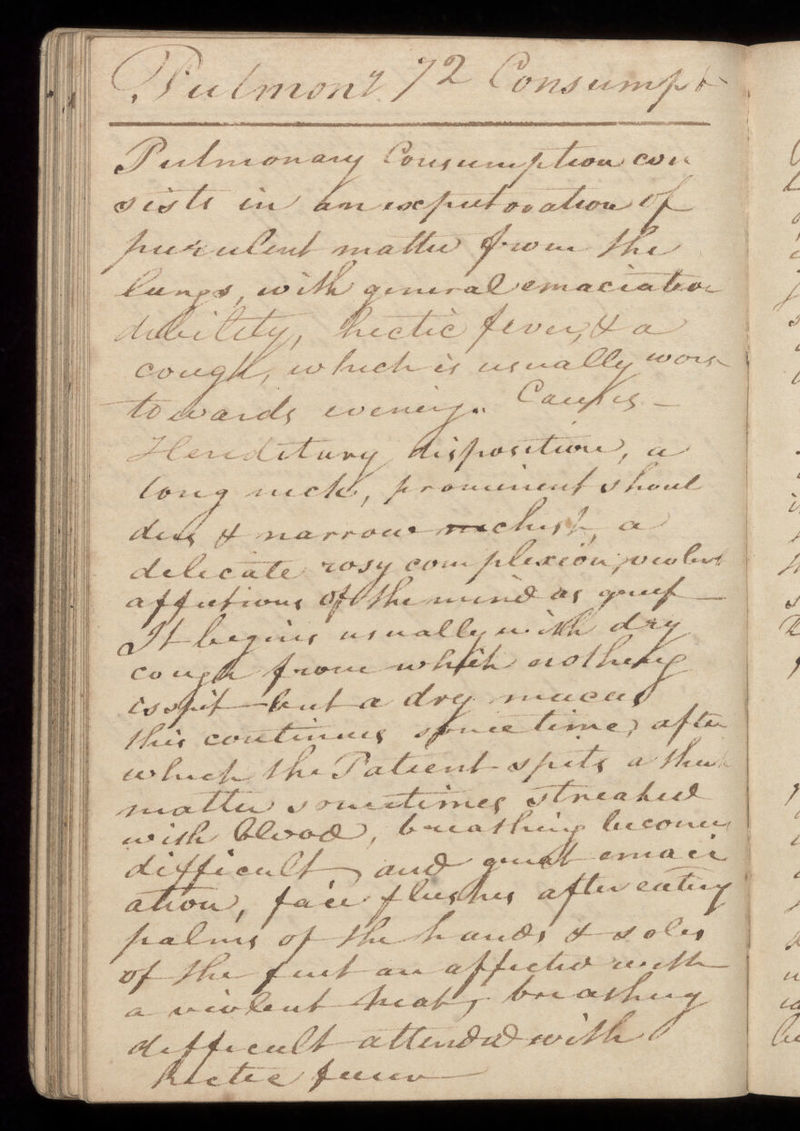 Pulmony 72 Consumpt
Pulmonary Consumption con
sists in an expectoration of
purulent matter from the
lungs, with general emaciation
debility, hectic fever, & a
cough, which is usually worse
towards evening. Causes –
Hereditary disposition, a
long neck, prominent shoul
ders & narrow chest, a
delicate rosy complexion, violent
affections of the mind as grief
It begins usually with dry
cough from which nothing
is spit but a dry mucus
this continues sometime, after
which the Patient spits a thick
matter sometimes streaked
with blood, breathing becomes
difficult and great emaci
ation, face flushes after eating
palms of the hands & soles
of the feet are affected with
a violent heat, breathing
difficult attended with
hectic fever